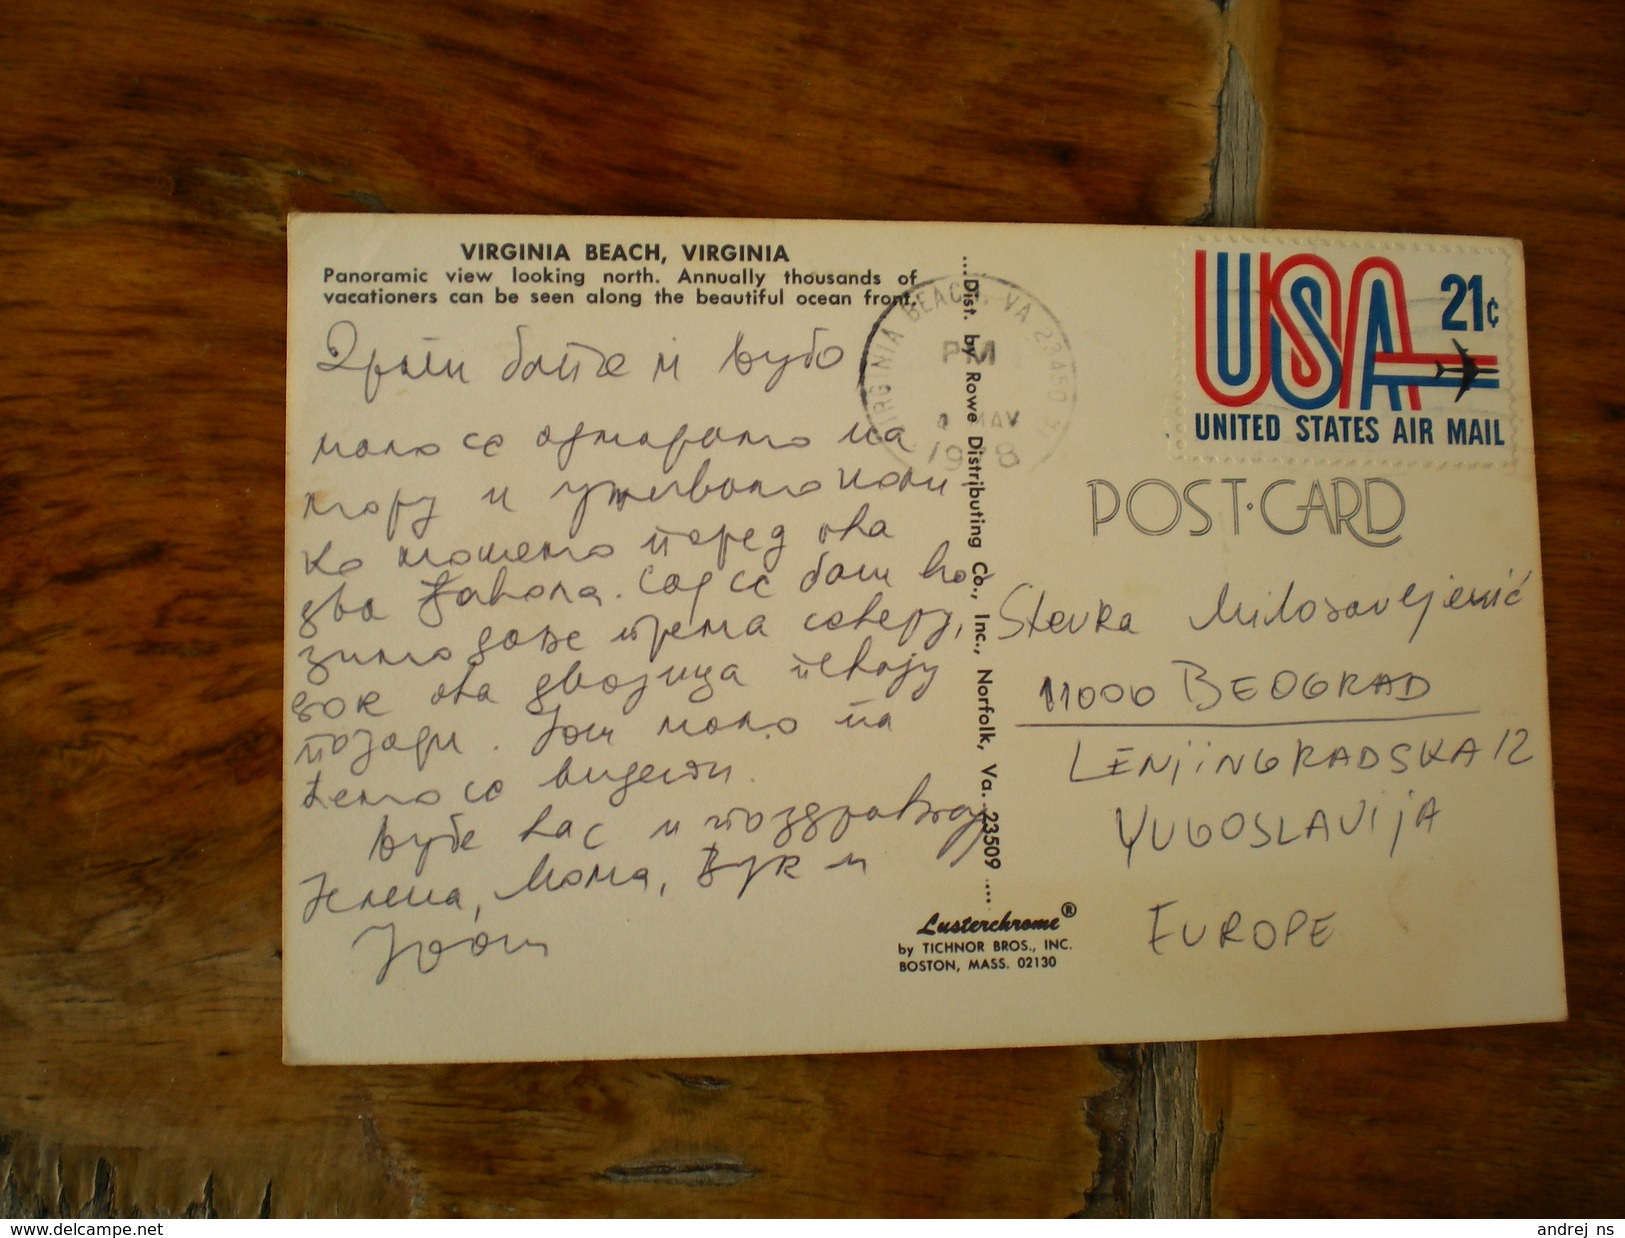 VIRGINIA BEACH, VIRGINIA
Panoramic view looking north. Annually thousands of
vacationers can be seen along the beautiful ocean front.
Драги бате и Љубо
мало се одмарамо на
мору и уживамо коли
ко можемо поред ова
два ђавола. Сад се баш во
зимо даље према северу,
док ова двојица певају
позади. Још мало па
ћемо се видети.
Љубе вас и поздрављају
Јелена, Мома, Вук и
...Dist. by Rowe Distributing Co., Inc., Norfolk, Va. 23509....
Lusterchrome®
by TICHNOR BROS., INC.
BOSTON, MASS. 02130
VIRGINIA BEACH, VA 23450
PM
MAY
USA 21c
UNITED STATES AIR MAIL
POST-CARD
Stevka Milosavljević
11000 BEOGRAD
LENjiNGRADSKA 12
YUGOSLAVIjA
EUROPE
www.delcampe.net
andrej ns